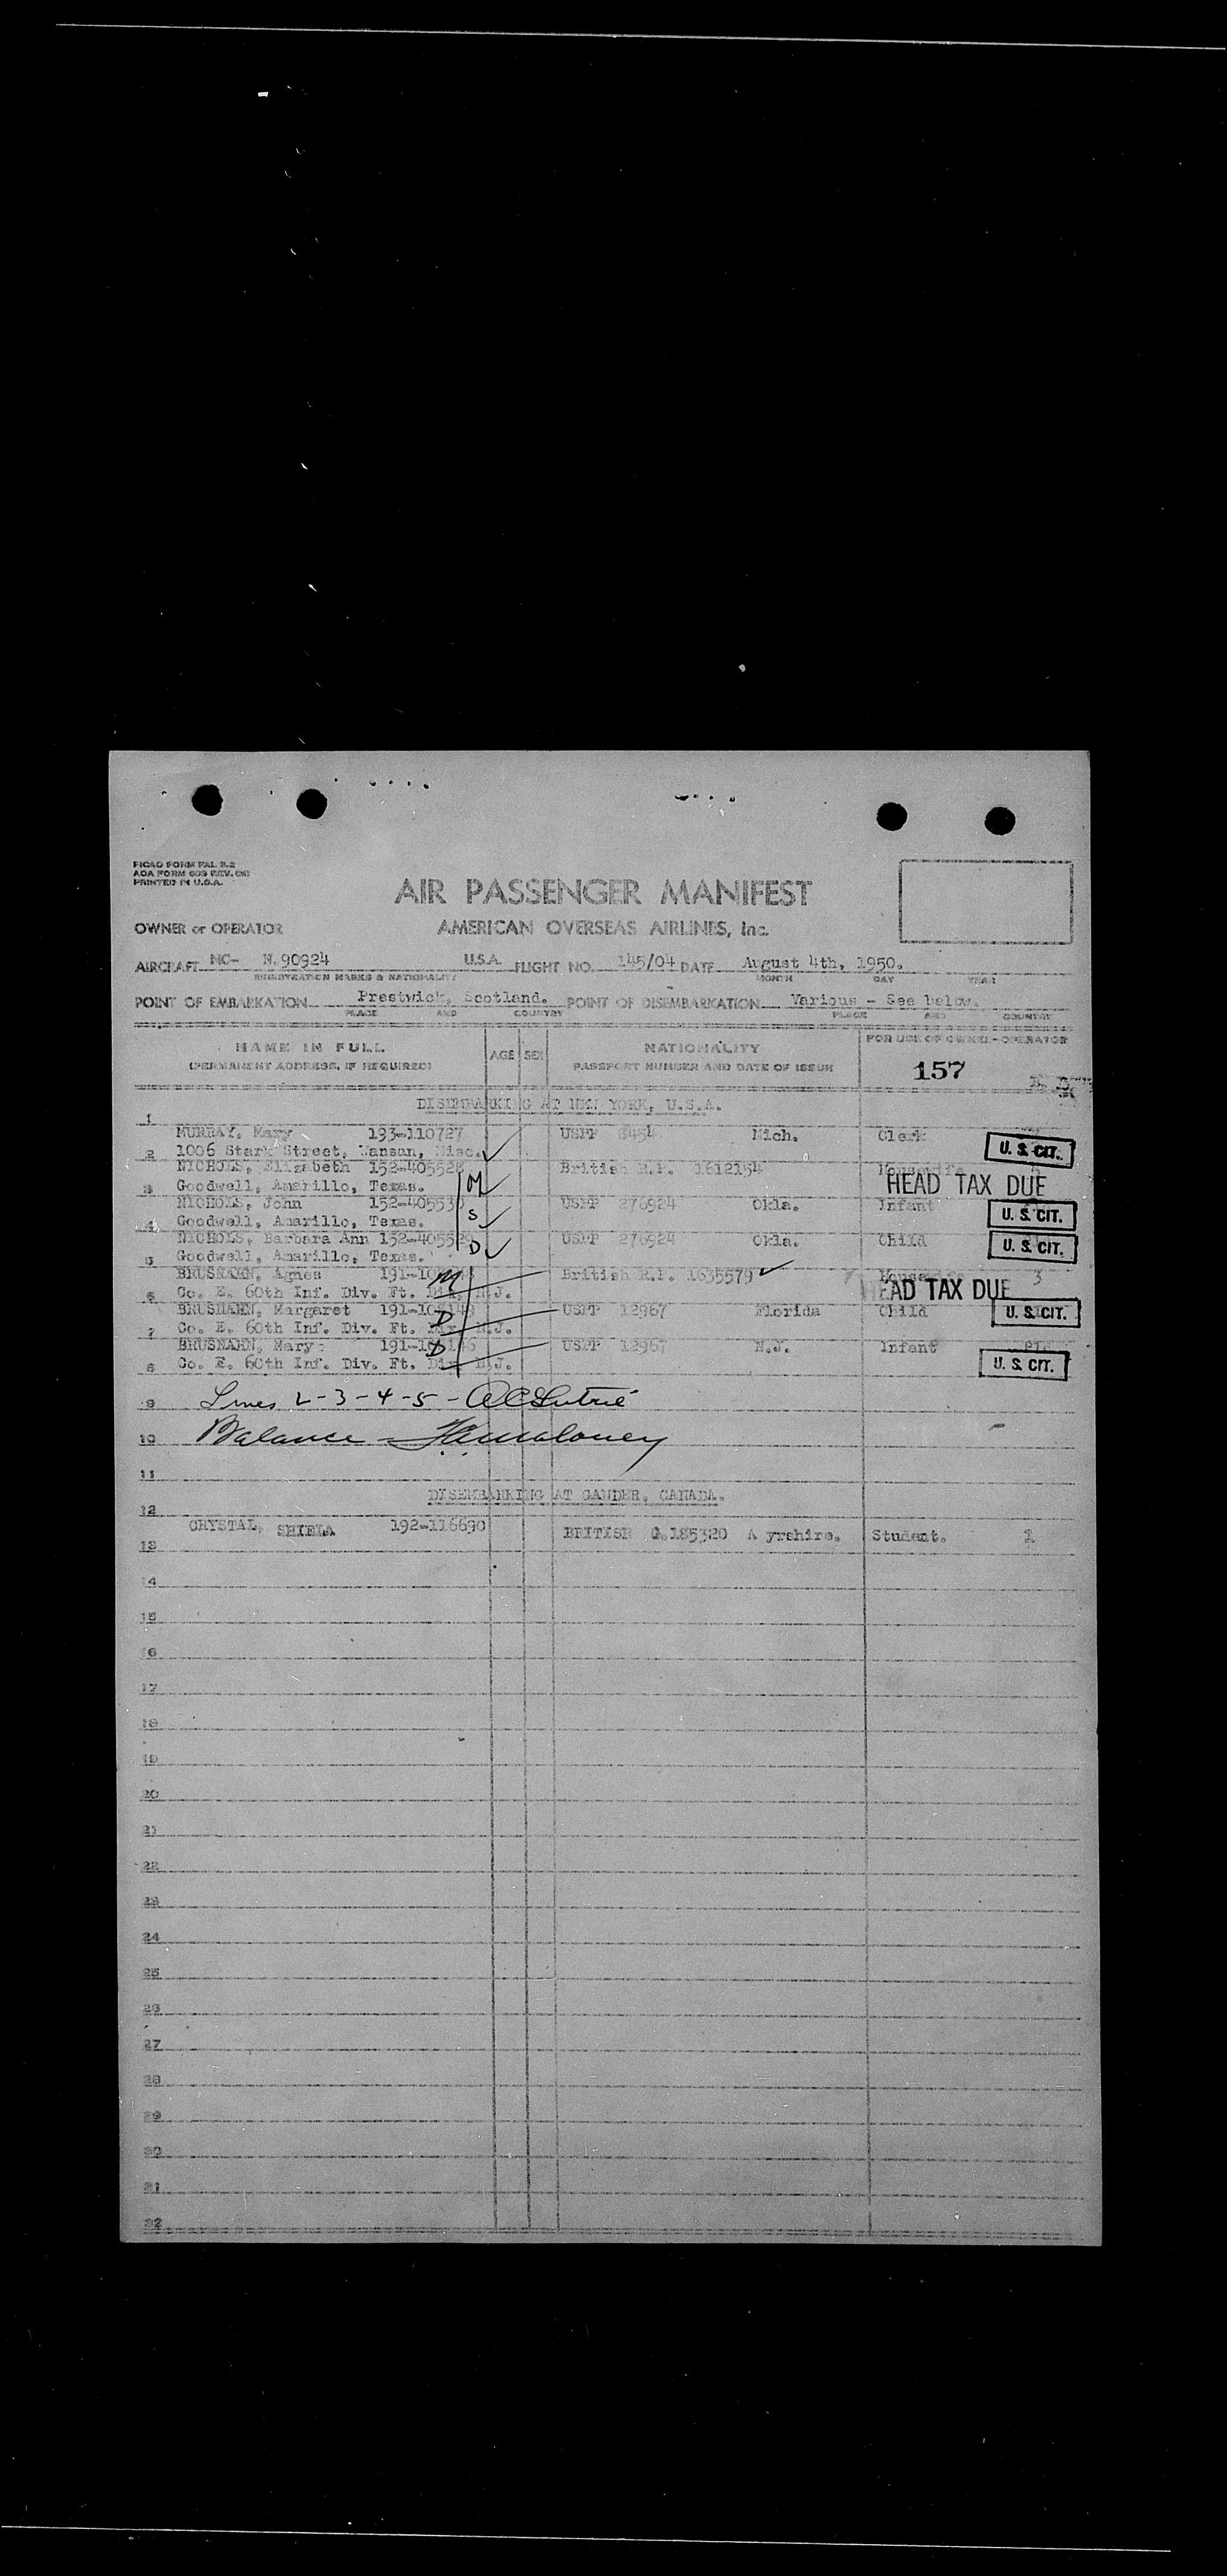 FICAO FORM PAL R-2
AOA FORM 603 REV.
PRINTED IN U.S.A.
AIR PASSENGER MANIFEST
OWNER or OPERATOR AMERICAN OVERSEAS AIRLINES, Inc.
AIRCRAFT NC- N.90924 U.S.A. FLIGHT NO. 145/04 DATE August 4th, 1950.
REGISTRATION MARKS & NATIONALITY MONTH DAY YEAR
POINT OF EMBARKATION Prestwick, Scotland. POINT OF DISEMBARKATION Various - See below.
PLACE AND COUNTRY PLACE AND COUNTRY
NAME IN FULL AGE SEX NATIONALITY FOR USE OF OWNER-OPERATOR
(PERMANENT ADDRESS, IF REQUIRED) PASSPORT NUMBER AND DATE OF ISSUE 157
DISEMBARKING AT NEW YORK, U.S.A.
1
MURRAY, Mary 193-110727 USPP Mich. Clerk
2 1006 Stark Street, U. S. CIT.
NICHOLS, Elizabeth 152-405528 British P.P. 1612154 Housewife
3 Goodwell, Amarillo, Texas. M HEAD TAX DUE
NICHOLS, John 152-405530 USPP 276924 Okla. Infant
4 Goodwell, Amarillo, Texas. S U. S. CIT.
NICHOLS, Barbara Ann 152-405529 USPP 276924 Okla. Child
5 Goodwell, Amarillo, Texas. D U. S. CIT.
BRUSMAHN, Agnes M British P.P. 1635579 3
6 Co. E. 60th Inf. Div. Ft. Dix, N.J. HEAD TAX DUE
BRUSMAHN, Margaret D USPP 12967 Florida Child
7 Co. E. 60th Inf. Div. Ft. Dix, N.J. U. S. CIT.
BRUSMAHN, Mary D USPP 12967 N.J. Infant
8 Co. E. 60th Inf. Div. Ft. Dix N.J. U. S. CIT.
9 Lines 2-3-4-5 -
10 Balance - Maloney
11
DISEMBARKING AT GANDER, CANADA.
12
CRYSTAL, SHIELA 192-116690 BRITISH C.185320 A yrshire. Student. 1
13
14
15
16
17
18
19
20
21
22
23
24
25
26
27
28
29
30
31
32